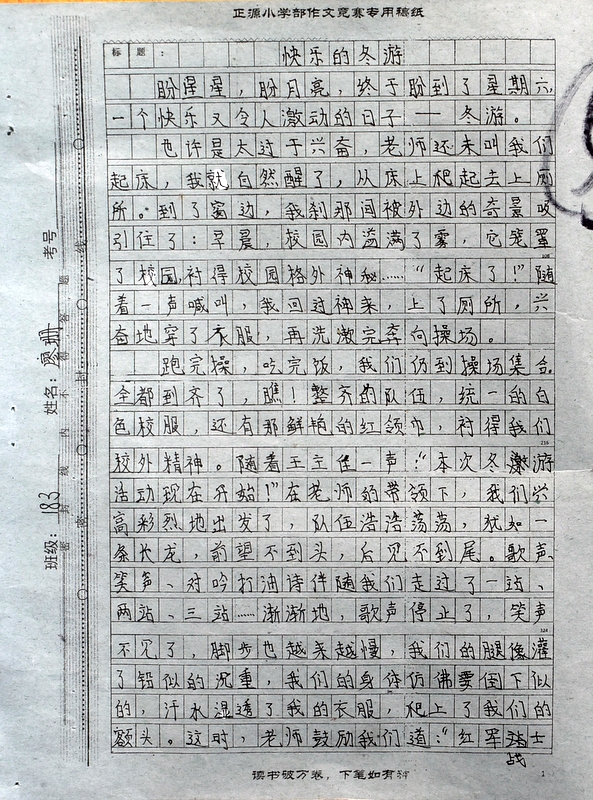 正源小学部作文竞赛专用稿纸
标题：快乐的冬游
盼星星，盼月亮，终于盼到了星期六，
一个快乐又令人激动的日子——冬游。
也许是太过于兴奋，老师还未叫我们
起床，我就自然醒了，从床上爬起去上厕
所。到了窗边，我刹那间被外边的奇景吸
引住了：早晨，校园内溢满了雾，它笼罩
108
了校园，衬得校园格外神秘……“起床了！”随
着一声喊叫，我回过神来，上了厕所，兴
奋地穿了衣服，再洗漱完奔向操场。
跑完操，吃完饭，我们仍到操场集合。
全都到齐了，瞧！整齐的队伍，统一的白
色校服，还有那鲜艳的红领巾，衬得我们
216
校外精神。随着王主任一声：“本次冬游
活动现在开始！”在老师的带领下，我们兴
高彩烈地出发了，队伍浩浩荡荡，犹如一
条长龙，前望不到头，后见不到尾。歌声、
笑声、对吟打油诗伴随我们走过了一站、
两站、三站……渐渐地，歌声停止了，笑声
324
不见了，脚步也越来越慢，我们的腿像灌
了铅似的沉重，我们的身体仿佛要倒下似
的，汗水湿透了我的衣服，爬上了我们的
额头。这时，老师鼓励我们道：“红军战士
读书破万卷，下笔如有神
1
考号
姓名：廖珊
班级：183
密封线内不得答题